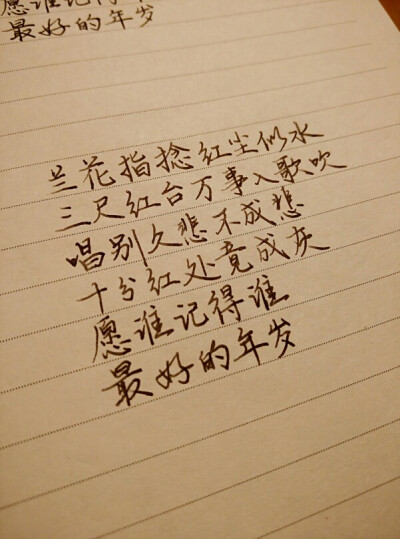 愿谁记得
最好的年岁
兰花指捻红尘似水
三尺红台万事入歌吹
唱别久悲不成悲
十分红处竟成灰
愿谁记得谁
最好的年岁